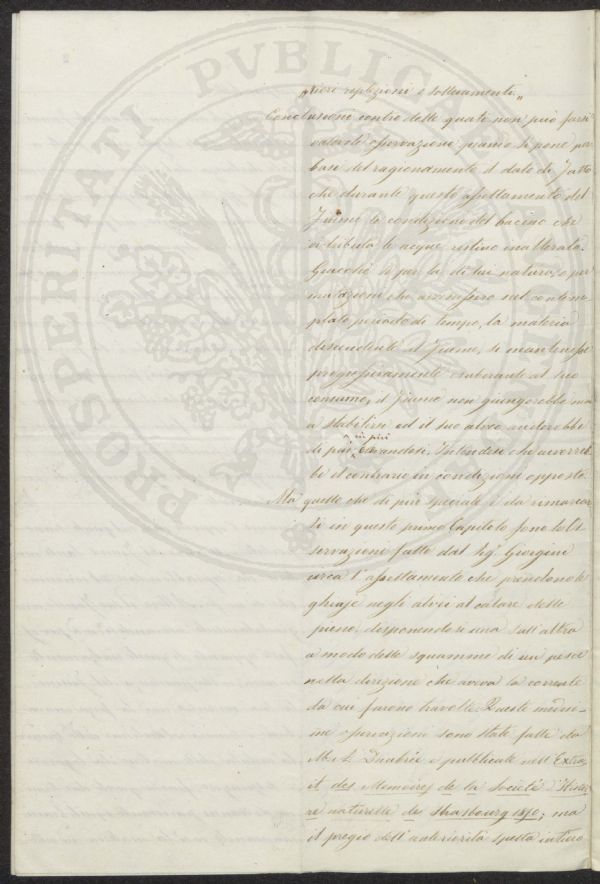 PROSPERITATI PVBLICAE
„rieri replezioni e sollevamenti„
Conclusioni contro delle quali non può farsi
valevole osservazione quando si pone per
base del ragionamento il dato di fatto
che durante questo assettamento del
fiume le condizioni del bacino che
vi tributa le acque restino inalterate.
Giacché se per la di lui natura, o per
mutazioni che avvenissero nel contem-
plato periodo di tempo, la materia
discendente il fiume, si mantenesse
progressivamente esuberante al suo
consumo, il fiume non giungerebbe mai
a stabilirsi ed il suo alveo anderebbe
in più
di più elevandosi. Intendesi che avverreb-
be il contrario in condizioni opposte.
Ma quello che di più speciale è da rimarcar-
si in questo primo Capitolo sono le Os-
servazioni fatte dal Sig.r Giorgini
circa l'assettamento che prendono le
ghiaje negli alvei al calare delle
piene, disponendosi una sull'altra
a modo delle squamme di un pesce
nella direzione che aveva la corrente
da cui furono travolte. Queste medesi-
me osservazioni sono state fatte da
M. A. Daubrée e pubblicate nell'Extra-
it des Memoires de la Société d'Histoi-
re naturelle de Strasbourg 1850; ma
il pregio dell'anteriorità spetta intiero